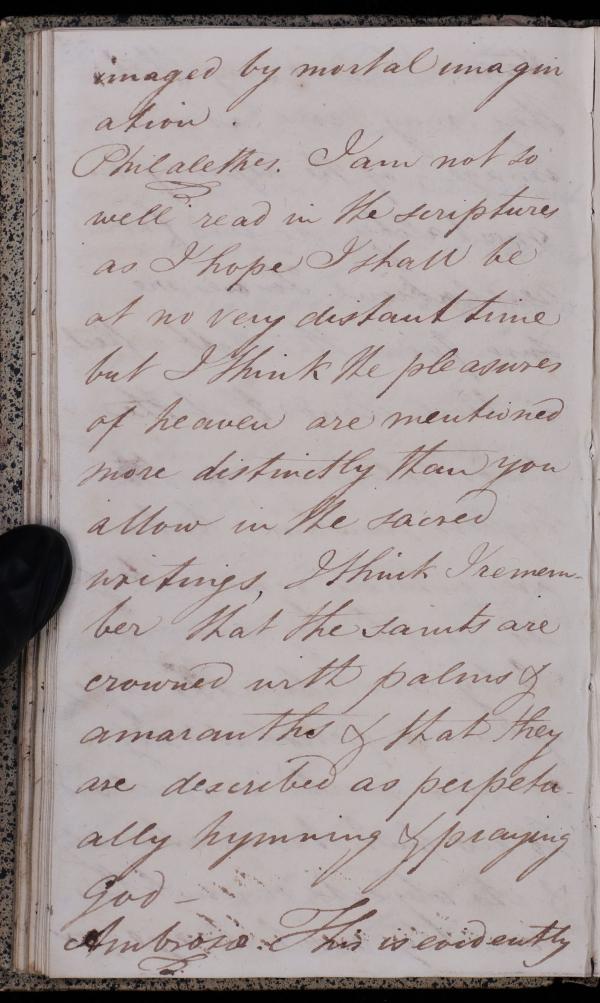 imaged by mortal imagin
ation.
Philalethes. I am not so
well read in the scriptures
as I hope I shall be
at no very distant time
but I think the pleasures
of heaven are mentioned
more distinctly than you
allow in the sacred
writings, I think I remem-
ber that the saints are
crowned with palms &
amaranths & that they
are described as perpetu-
ally hymning & praying
God –
Ambrosio. This is evidently